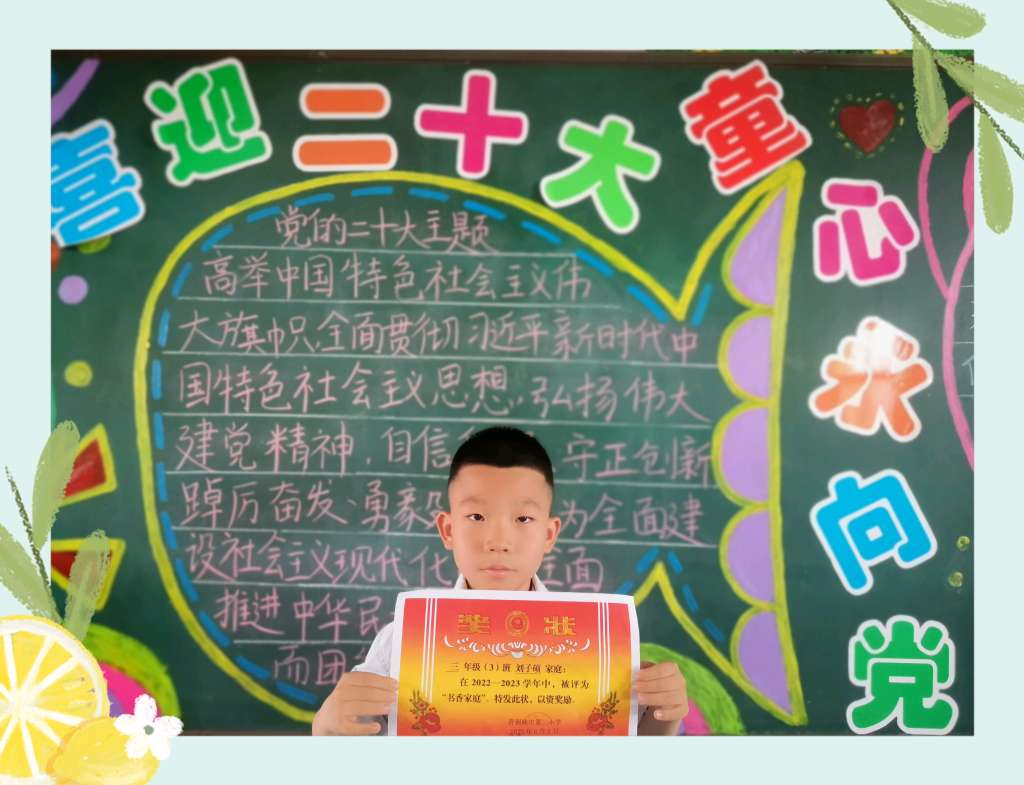 喜迎二十大童心永向党
党的二十大主题
高举中国特色社会主义伟
大旗帜,全面贯彻习近平新时代中
国特色社会主义思想,弘扬伟大
建党精神,自信
守正创新
踔厉奋发、勇毅
为全面建
设社会主义现代化
全面
推进中华民
而团
奖状
三 年级(3)班 刘子硕 家庭:
在 2022—2023 学年中,被评为
“书香家庭”。特发此状,以资奖励。